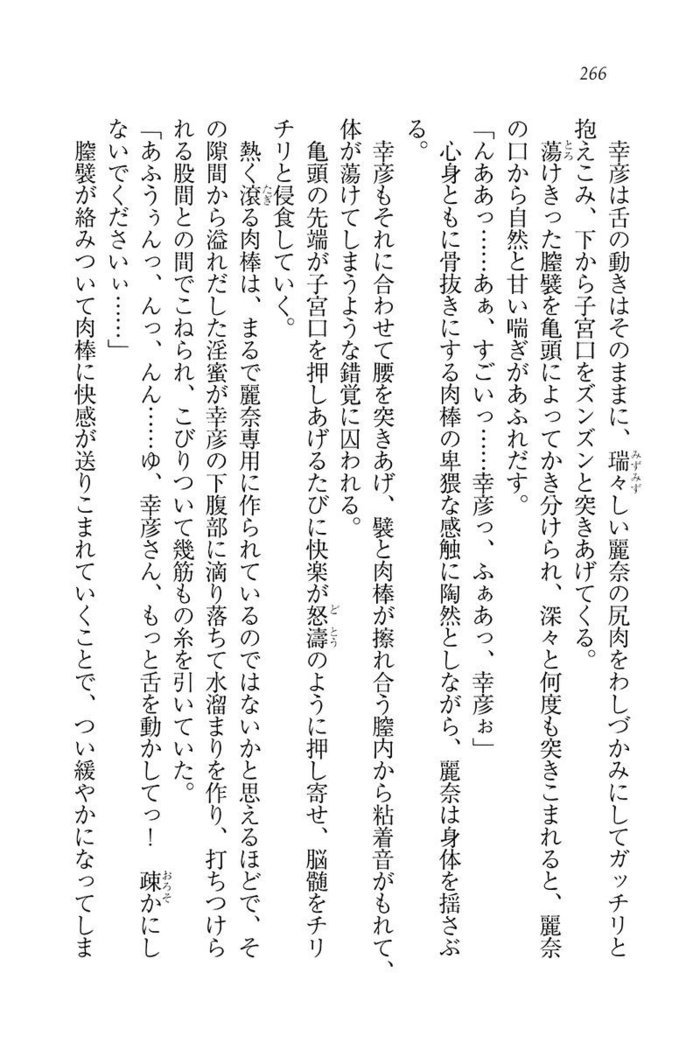 266
幸彦は舌の動きはそのままに、瑞々しい麗奈の尻肉をわしづかみにしてガッチリと
抱えこみ、下から子宮口をズンズンと突きあげてくる。
蕩けきった膣襞を亀頭によってかき分けられ、深々と何度も突きこまれると、麗奈
の口から自然と甘い喘ぎがあふれだす。
「んああっ……あぁ、すごいっ……幸彦っ、ふぁあっ、幸彦ぉ」
心身ともに骨抜きにする肉棒の卑猥な感触に陶然としながら、麗奈は身体を揺さぶ
る。
幸彦もそれに合わせて腰を突きあげ、襞と肉棒が擦れ合う膣内から粘着音がもれて、
体が蕩けてしまうような錯覚に囚われる。
亀頭の先端が子宮口を押しあげるたびに快楽が怒濤のように押し寄せ、脳髄をチリ
チリと侵食していく。
熱く滾る肉棒は、まるで麗奈専用に作られているのではないかと思えるほどで、そ
の隙間から溢れだした淫蜜が幸彦の下腹部に滴り落ちて水溜まりを作り、打ちつけら
れる股間との間でこねられ、こびりついて幾筋もの糸を引いていた。
「あふうぅんっ、んっ、んん……ゆ、幸彦さん、もっと舌を動かしてっ！　疎かにし
ないでくださいぃ……」
膣襞が絡みついて肉棒に快感が送りこまれていくことで、つい緩やかになってしま